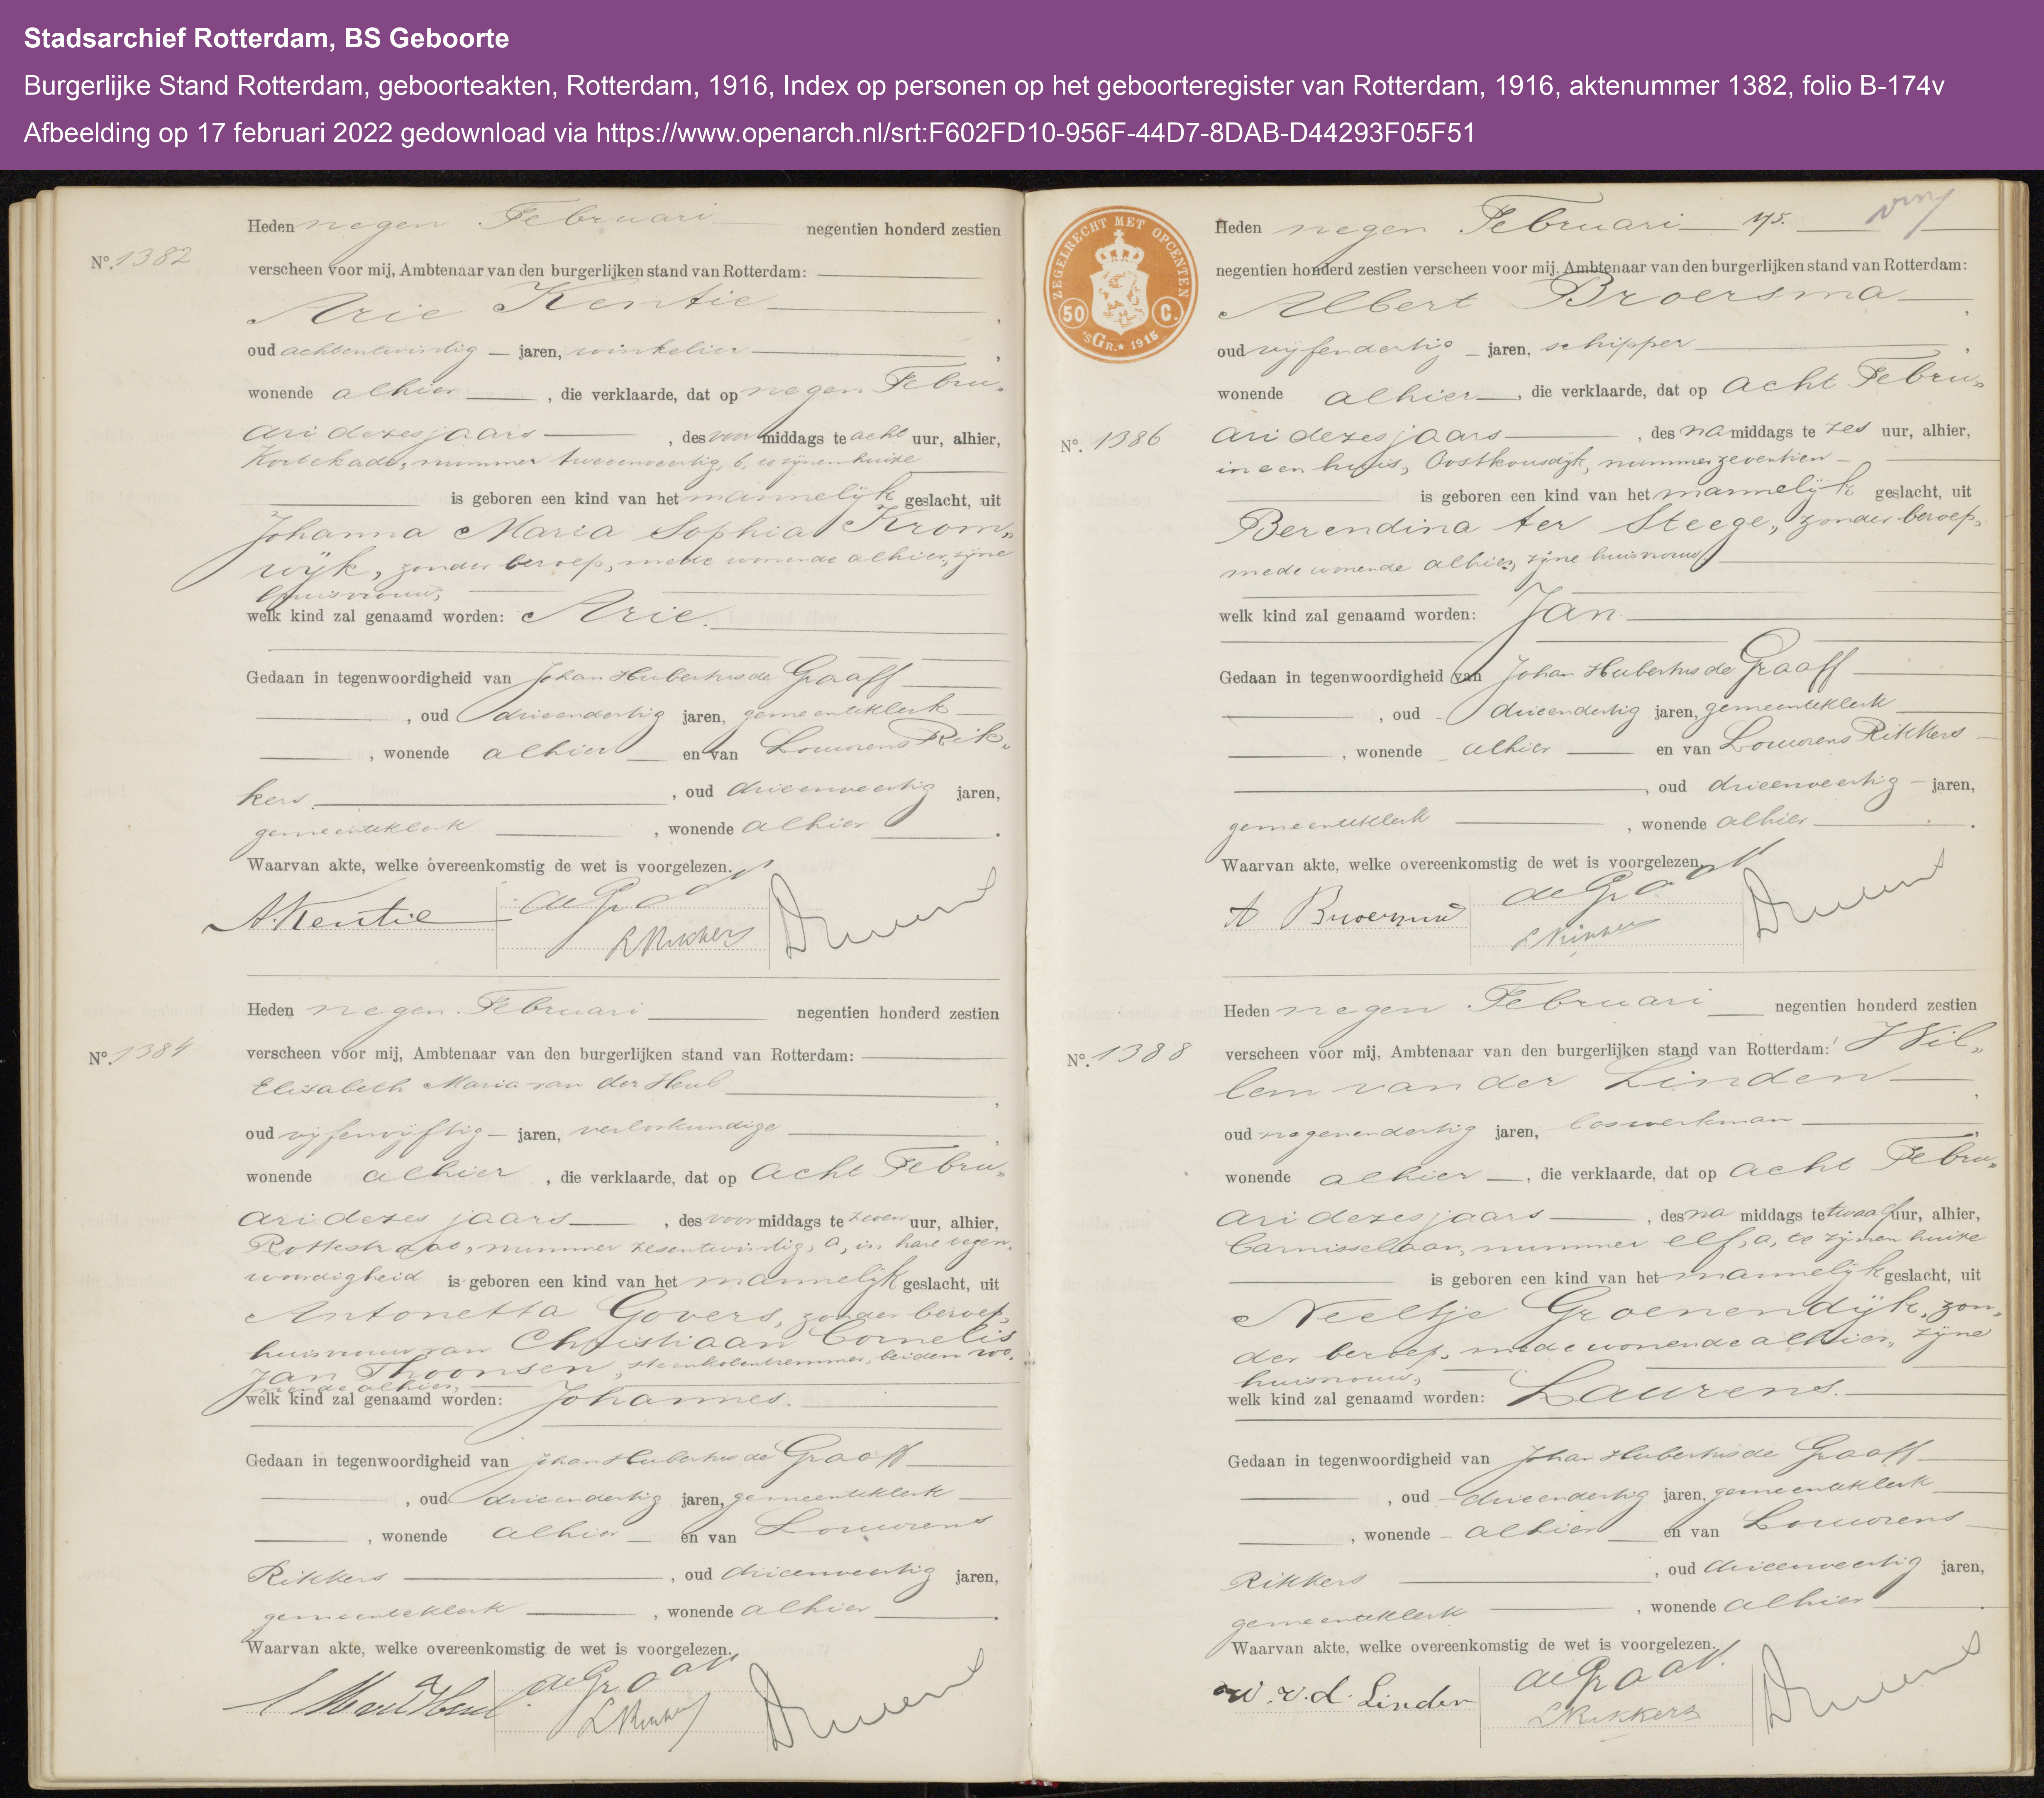 Stadsarchief Rotterdam, BS Geboorte
Burgerlijke Stand Rotterdam, geboorteakten, Rotterdam, 1916, Index op personen op het geboorteregister van Rotterdam, 1916, aktenummer 1382, folio B-174v
Afbeelding op 17 februari 2022 gedownload via https://www.openarch.nl/srt:F602FD10-956F-44D7-8DAB-D44293F05F51
Heden negen Februari negentien honderd zestien
No. 1382
verscheen voor mij, Ambtenaar van den burgerlijken stand van Rotterdam:
Arie Kentie,
oud achtentwintig jaren, winkelier,
wonende alhier, die verklaarde, dat op negen Febru„
ari dezes jaars, des voormiddags te acht uur, alhier,
Kortekade, nummer tweeenveertig, b, te zijnen huize
is geboren een kind van het mannelijk geslacht, uit
Johanna Maria Sophia Krom„
wijk, zonder beroep, mede wonende alhier, zijne
huisvrouw,
welk kind zal genaamd worden: Arie.
Gedaan in tegenwoordigheid van Johan Hubertus de Graaff
, oud drieendertig jaren, gemeenteklerk
, wonende alhier en van Louwrens Rik„
kers, oud drieenveertig jaren,
gemeenteklerk, wonende alhier.
Waarvan akte, welke overeenkomstig de wet is voorgelezen.
A. Kentie de Graaff
L Rikkers
Heden negen Februari negentien honderd zestien
No. 1384
verscheen voor mij, Ambtenaar van den burgerlijken stand van Rotterdam:
Elizabeth Maria van der Heul,
oud vijfenvijftig jaren, verloskundige,
wonende alhier, die verklaarde, dat op acht Febru„
ari dezes jaars, des voormiddags te zeven uur, alhier,
Rottestraat, nummer zesentwintig, a, in hare tegen„
woordigheid is geboren een kind van het mannelijk geslacht, uit
Antonetta Govers, zonder beroep,
huisvrouw van Christiaan Cornelis
Jan Thoonsen, steenkolentremmer, beiden wo„
nende alhier,
welk kind zal genaamd worden: Johannes.
Gedaan in tegenwoordigheid van Johan Hubertus de Graaff
, oud drieendertig jaren, gemeenteklerk
, wonende alhier en van Louwrens
Rikkers, oud drieenveertig jaren,
gemeenteklerk, wonende alhier.
Waarvan akte, welke overeenkomstig de wet is voorgelezen.
de Graaff
L Rikkers
ZEGELRECHT MET OPCENTEN
50 C.
'sGR. 1915
Heden negen Februari 175.
negentien honderd zestien verscheen voor mij, Ambtenaar van den burgerlijken stand van Rotterdam:
Albert Broersma,
oud vijfendertig jaren, schipper,
wonende alhier, die verklaarde, dat op acht Febru„
No. 1386
ari dezes jaars, des namiddags te zes uur, alhier,
in een huis, Oostkousdijk, nummer zeventien
is geboren een kind van het mannelijk geslacht, uit
Berendina ter Steege, zonder beroep,
mede wonende alhier, zijne huisvrouw,
welk kind zal genaamd worden: Jan
Gedaan in tegenwoordigheid van Johan Hubertus de Graaff
, oud drieendertig jaren, gemeenteklerk
, wonende alhier en van Louwrens Rikkers
, oud drieenveertig jaren,
gemeenteklerk, wonende alhier.
Waarvan akte, welke overeenkomstig de wet is voorgelezen.
A Broersma de Graaff
L Rikkers
Heden negen Februari negentien honderd zestien
No. 1388
verscheen voor mij, Ambtenaar van den burgerlijken stand van Rotterdam: Wil„
lem van der Linden,
oud negenendertig jaren, loswerkman,
wonende alhier, die verklaarde, dat op acht Febru„
ari dezes jaars, des na middags te twaalf uur, alhier,
Carnisselaan, nummer elf, a, te zijnen huize
is geboren een kind van het mannelijk geslacht, uit
Neeltje Groenendijk, zon„
der beroep, mede wonende alhier, zijne
huisvrouw,
welk kind zal genaamd worden: Laurens.
Gedaan in tegenwoordigheid van Johan Hubertus de Graaff
, oud drieendertig jaren, gemeenteklerk
, wonende alhier en van Louwrens
Rikkers, oud drieenveertig jaren,
gemeenteklerk, wonende alhier.
Waarvan akte, welke overeenkomstig de wet is voorgelezen.
W. v. d. Linden de Graaff
L Rikkers